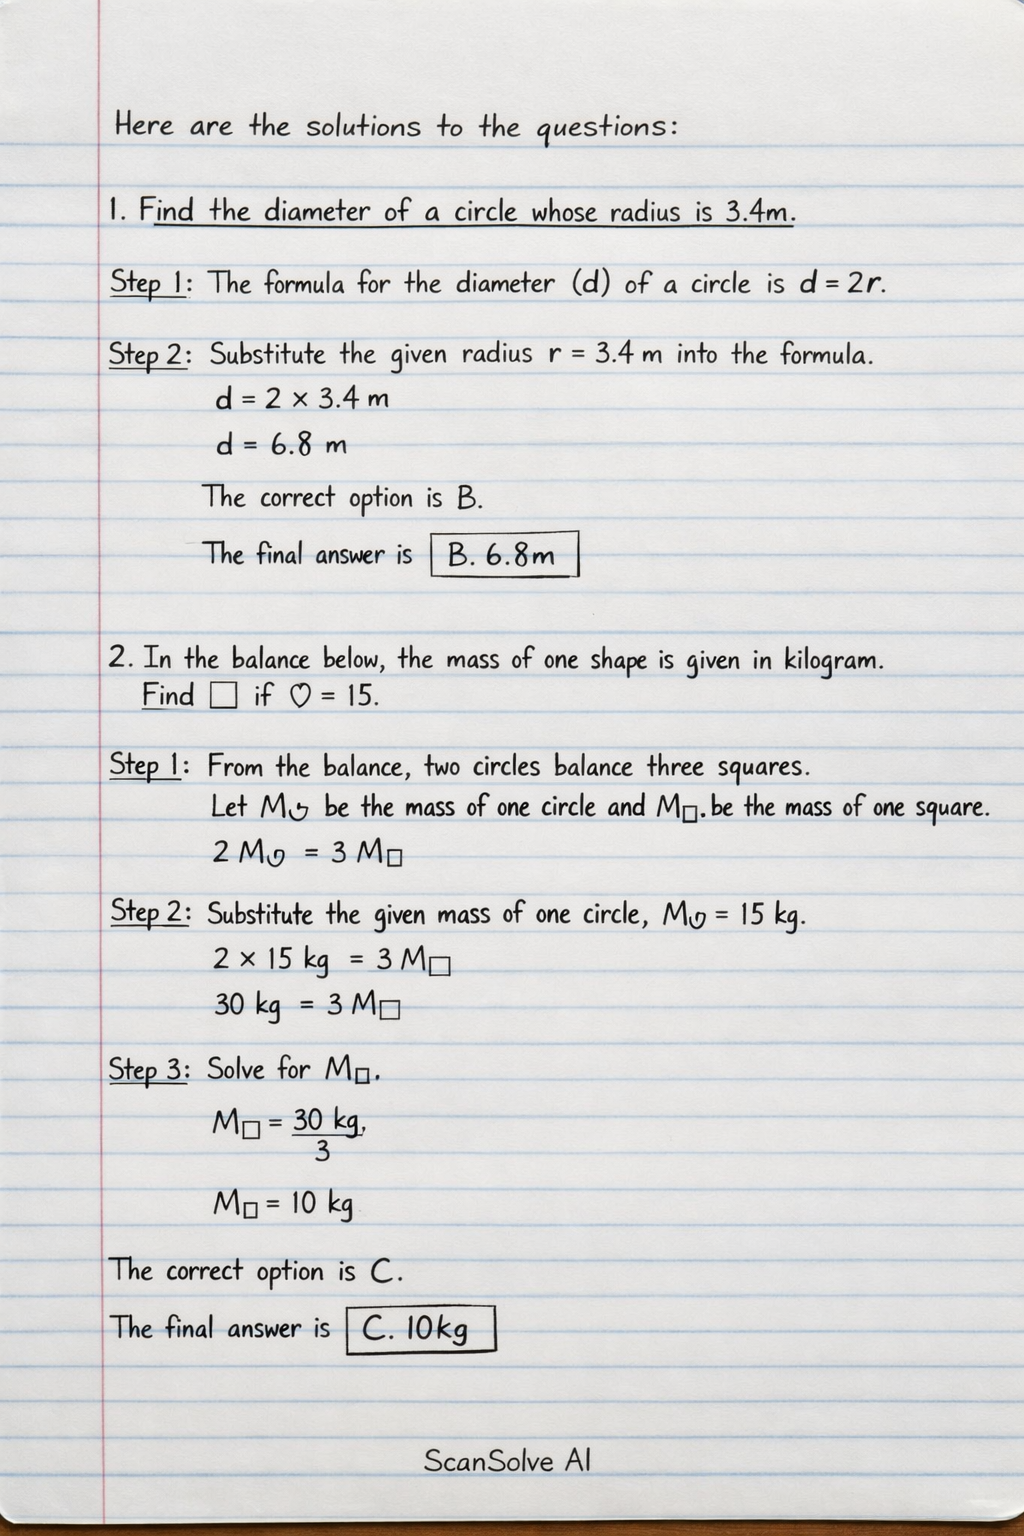 Here are the solutions to the questions:
1. Find the diameter of a circle whose radius is 3.4m.
Step 1: The formula for the diameter (d) of a circle is d = 2r.
Step 2: Substitute the given radius r = 3.4 m into the formula.
d = 2 × 3.4 m
d = 6.8 m
The correct option is B.
The final answer is B. 6.8m
2. In the balance below, the mass of one shape is given in kilogram.
Find □ if ♡ = 15.
Step 1: From the balance, two circles balance three squares.
Let M be the mass of one circle and M□. be the mass of one square.
2 M = 3 M□
Step 2: Substitute the given mass of one circle, M = 15 kg.
2 × 15 kg = 3 M□
30 kg = 3 M□
Step 3: Solve for M□.
M□ = 30 kg,
3
M□ = 10 kg
The correct option is C.
The final answer is C. 10kg
ScanSolve AI